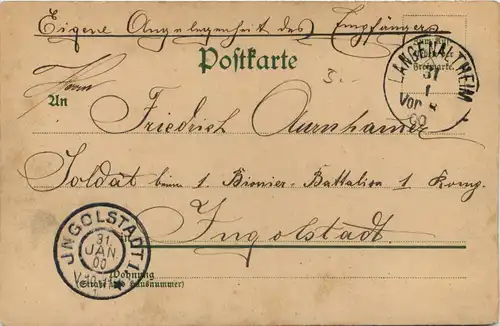 Eigene Angelegenheit des Empfängers
Postkarte
LANGENALTHEIM
31
1
Vor. 8
00
Herrn
An
Friedrich Aurnhamer
Soldat beim 1. Pionier-Battalion 1 Komg.
Ingolstadt.
INGOLSTADT 1
31
JAN
00
Wohnung
(Straße und Hausnummer)